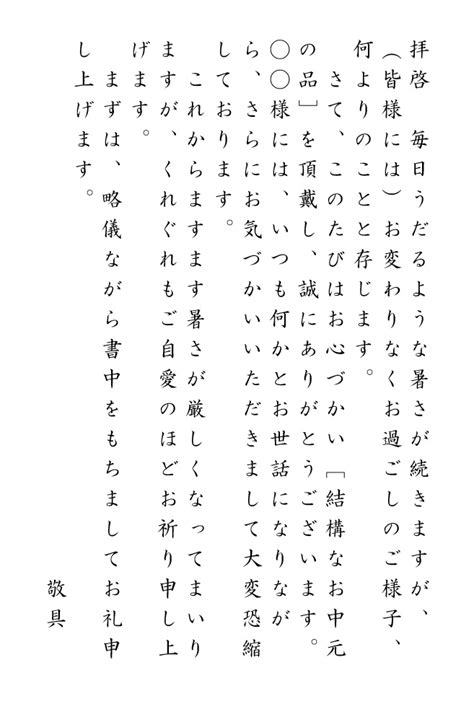 拝啓　毎日うだるような暑さが続きますが、
（皆様には）お変わりなくお過ごしのご様子、
何よりのことと存じます。
　さて、このたびはお心づかい［結構なお中元
の品］を頂戴し、誠にありがとうございます。
〇〇様には、いつも何かとお世話になりなが
ら、さらにお気づかいいただきまして大変恐縮
しております。
　これからますます暑さが厳しくなってまいり
ますが、くれぐれもご自愛のほどお祈り申し上
げます。
　まずは、略儀ながら書中をもちましてお礼申
し上げます。
敬具